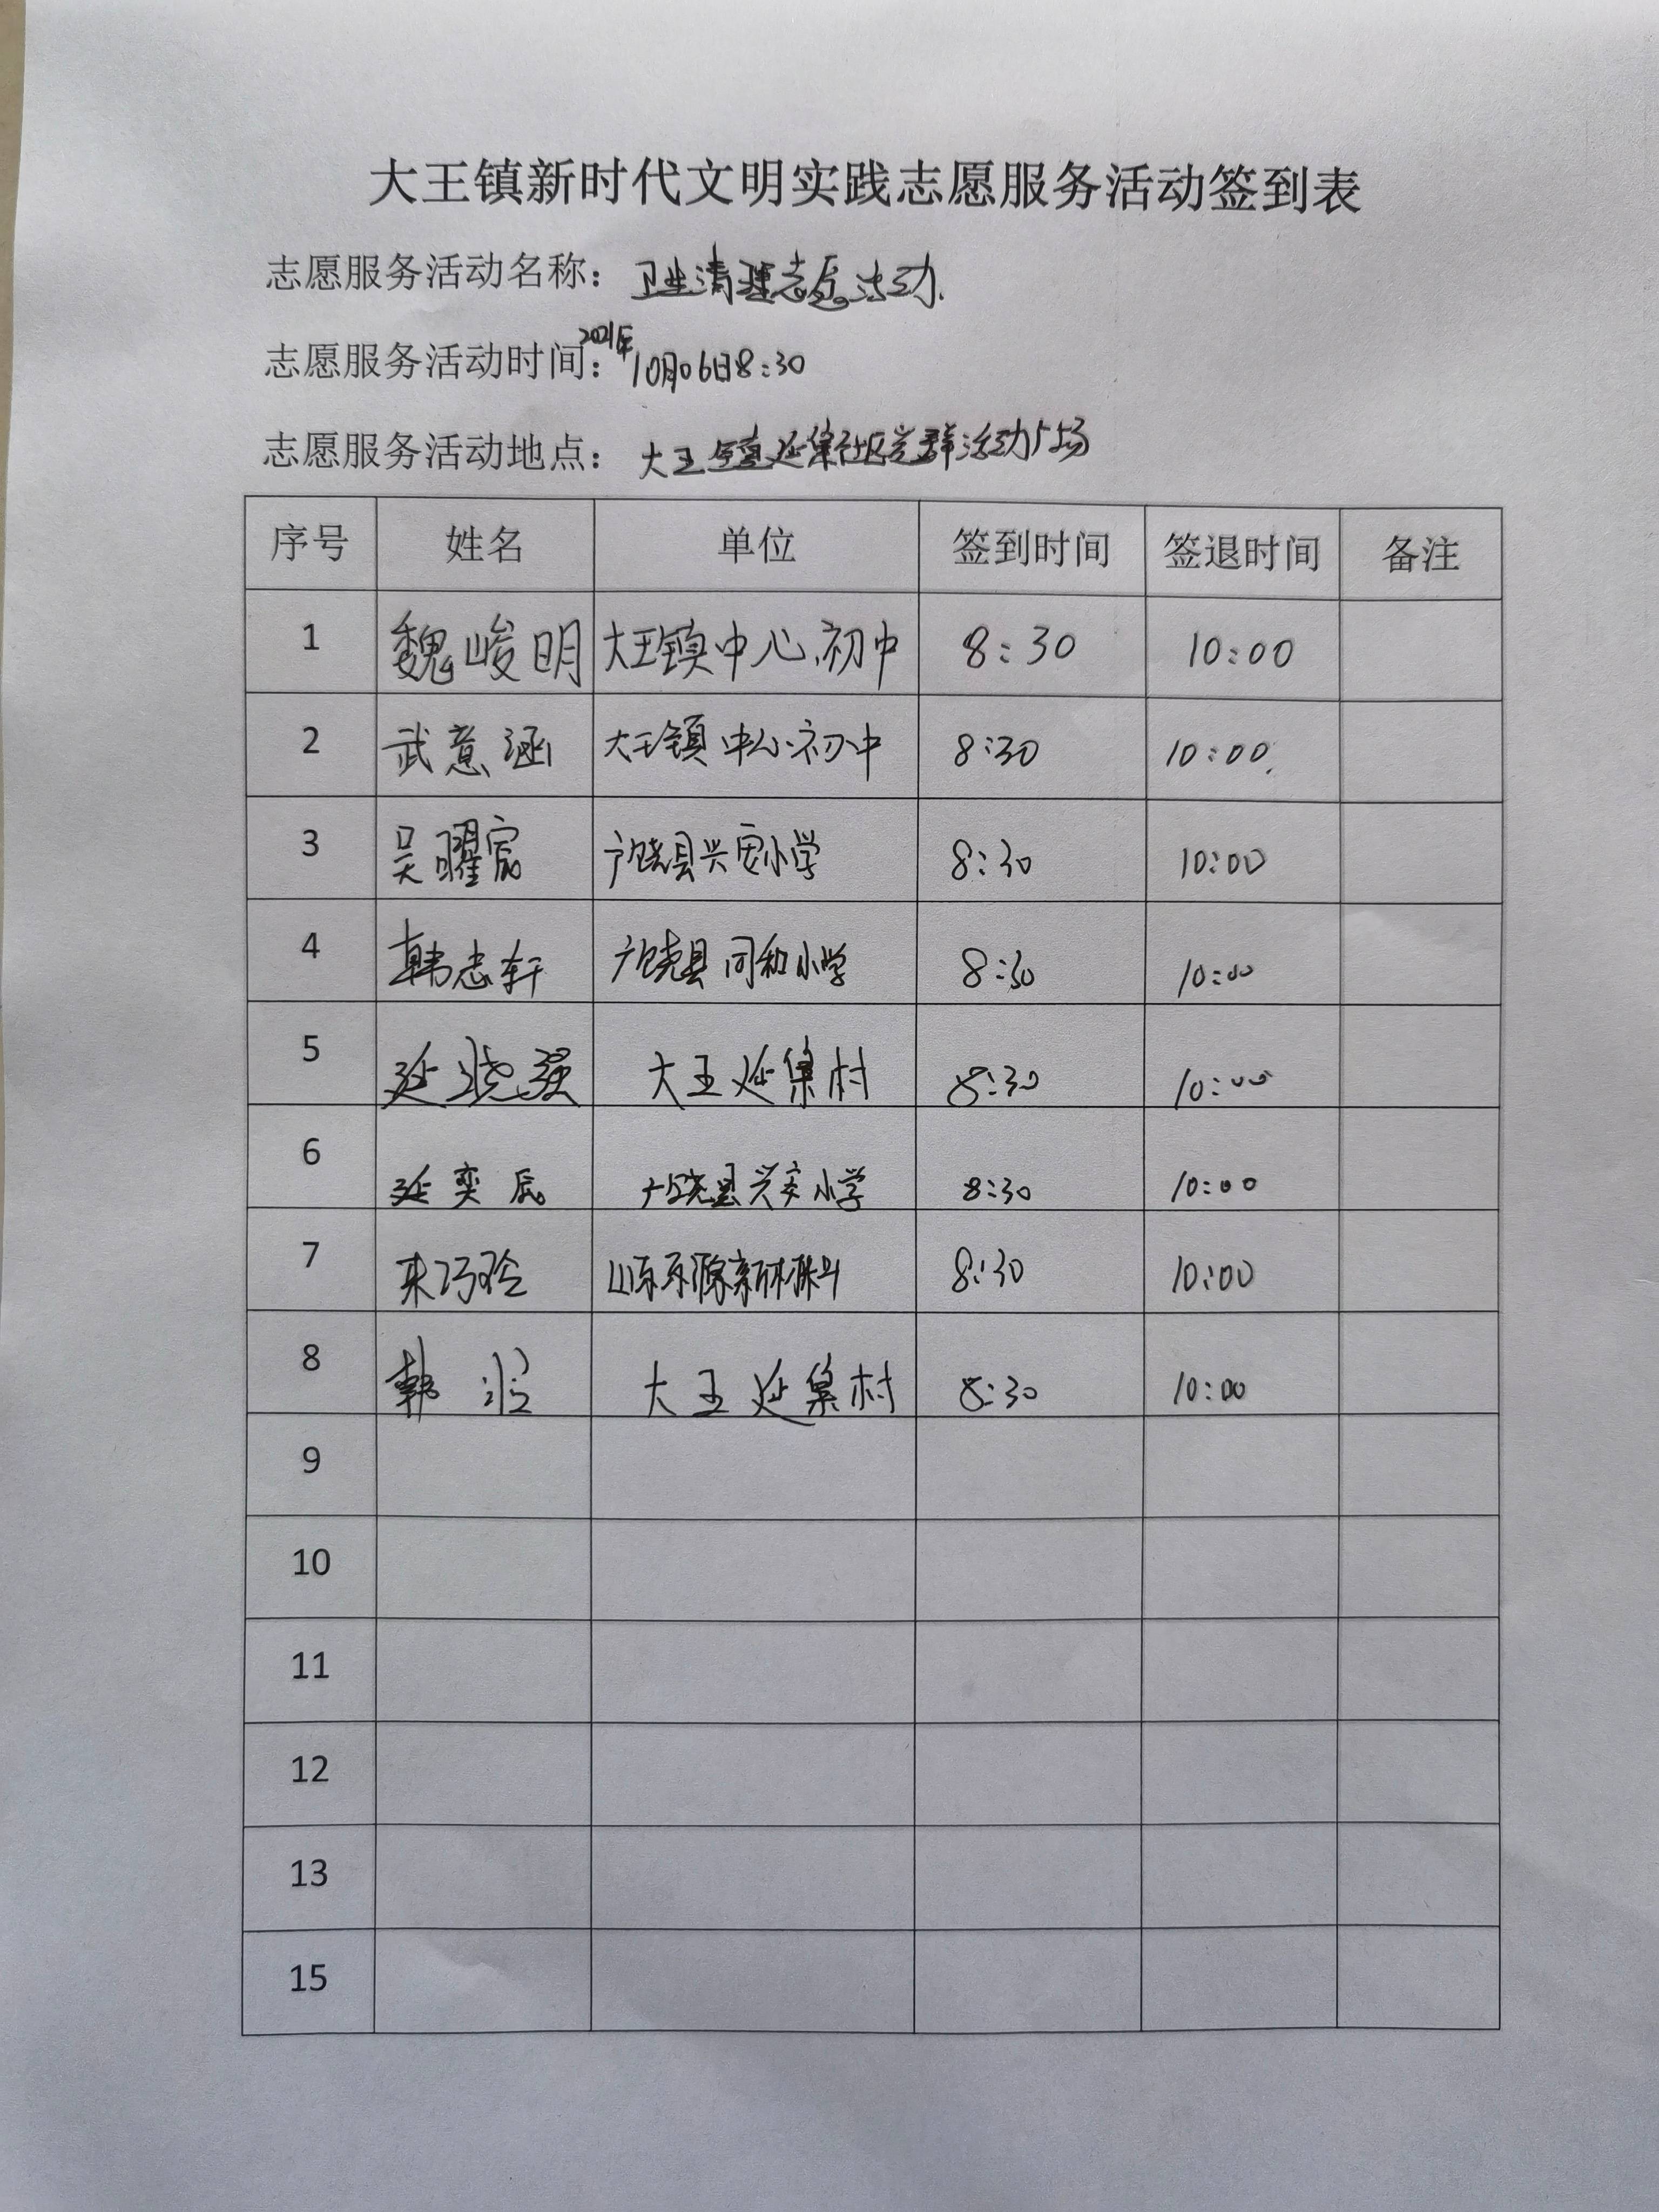 大王镇新时代文明实践志愿服务活动签到表
志愿服务活动名称：卫生清理志愿活动
志愿服务活动时间：2021年10月06日8:30
志愿服务活动地点：大王镇延集社区党群活动广场
序号 姓名 单位 签到时间 签退时间 备注
1 魏峻明 大王镇中心初中 8:30 10:00
2 武意涵 大王镇中心初中 8:30 10:00
3 吴曜宸 广饶县兴安小学 8:30 10:00
4 韩志轩 广饶县同和小学 8:30 10:00
5 延晓强 大王延集村 8:30 10:00
6 延奕辰 广饶县兴安小学 8:30 10:00
7 8:30 10:00
8 韩 大王延集村 8:30 10:00
9
10
11
12
13
15